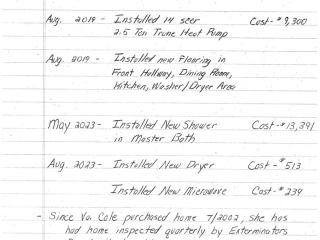 Aug. 2019 - Installed 14 seer Cost - $9,300
2.5 Ton Trane Heat Pump
Aug. 2019 - Installed new Flooring in
Front Hallway, Dining Room,
Kitchen, Washer/Dryer Area
May 2023 - Installed New Shower Cost - $13,391
in Master Bath
Aug. 2023 - Installed New Dryer Cost - $513
Installed New Microwave Cost - $239
- Since Va. Cole purchased home 7/2002, she has
had home inspected quarterly by Exterminators